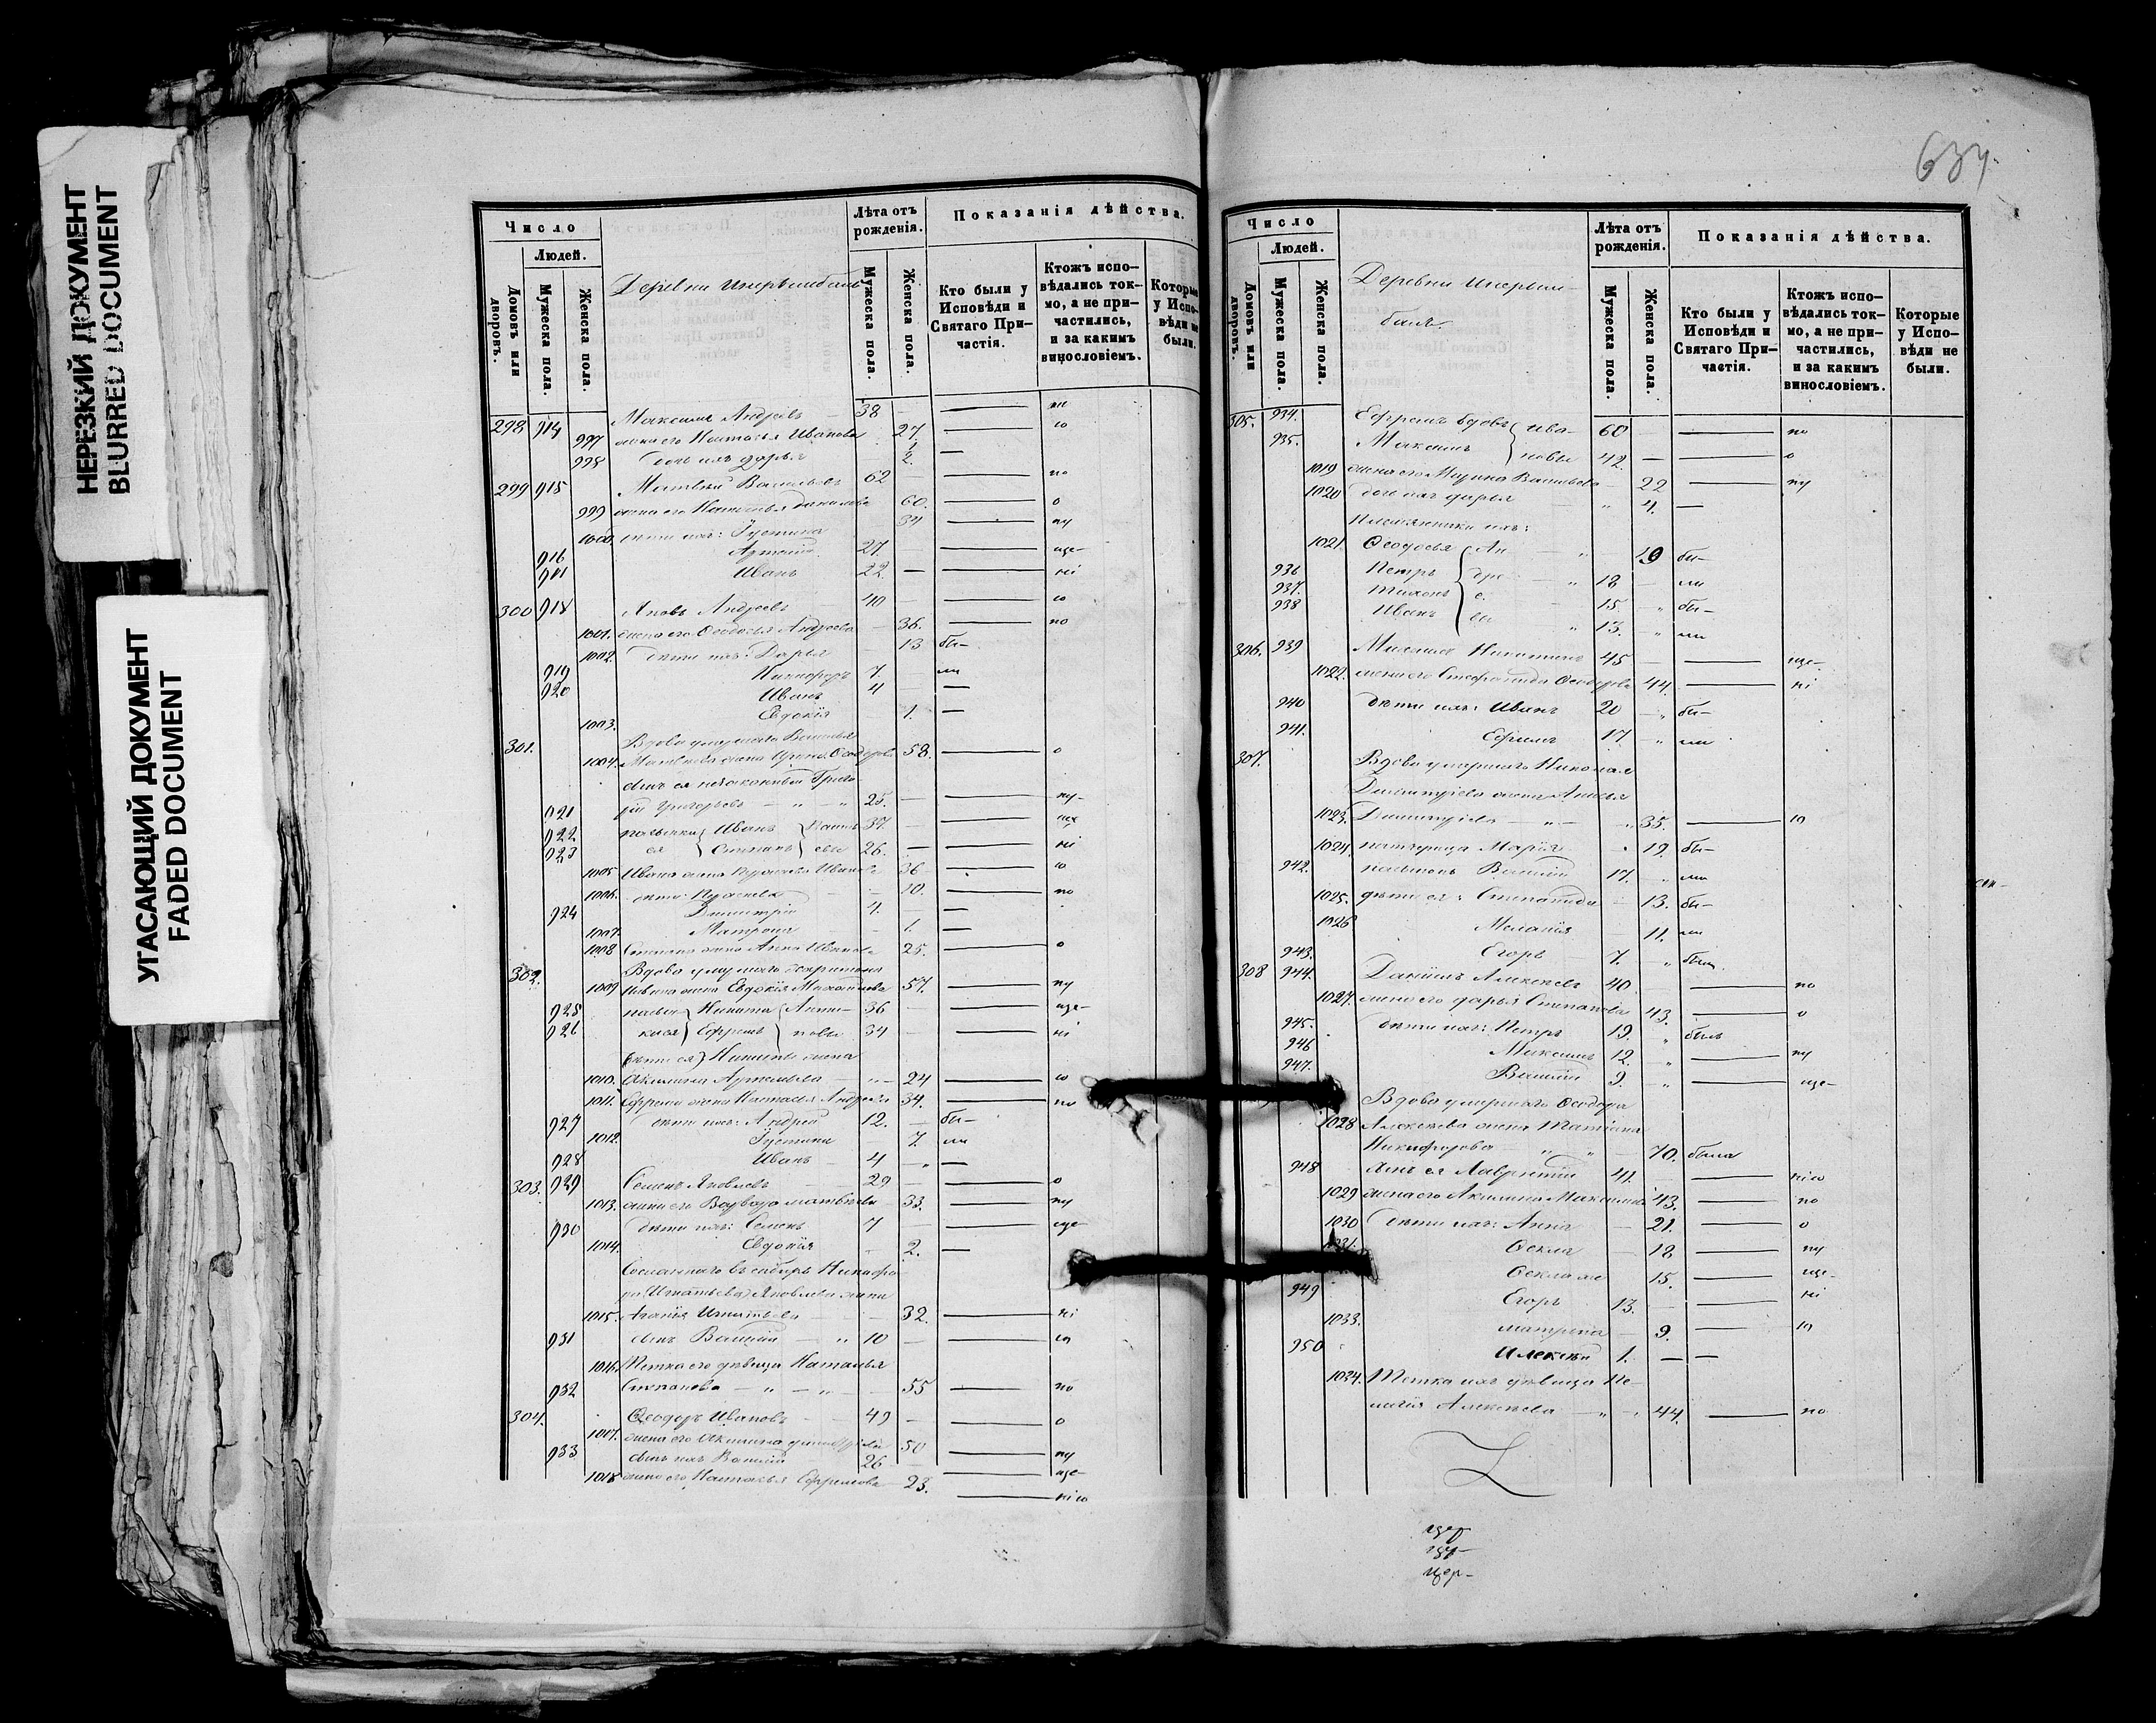 НЕРЕЗКИЙ ДОКУМЕНТ
BLURRED DOCUMENT
УГАСАЮЩИЙ ДОКУМЕНТ
FADED DOCUMENT
Число
Людей.
Домовъ или дворовъ.
Мужеска пола.
Женска пола.
Деревни
Лѣта отъ рожденія.
Мужеска пола.
Женска пола.
Показанія дѣйства.
Кто были у Исповѣди и Святаго При-
частія.
Ктожъ испо-
вѣдались ток-
мо, а не при-
частились,
и за какимъ
винословіемъ.
Которые
у Испо-
вѣди не
были.
298 914 Максимъ Андреевъ 38 —
997 жена его Наталья Иванова 27 —
998 дочь ихъ Дарья 2. —
299 915 Матвѣй Васильевъ 62 — по
999 жена его Наталья 60. — о
1000. дѣти ихъ: Устинья 34 — пу
916 Артемій 27. — ще-
Иванъ 22. — ні
300 918 Яковъ Андреевъ 40 — ю
1001. жена его Ѳеодосья Андреева 36. — по
1002. дѣти ихъ: Дарья 13 бы-
919 Никифоръ 7. ли
920 Иванъ 4 —
1003. Евдокія 1. —
301. Вдова умершаго Василья
1004. Матвѣева жена Ирина Ѳеодорова 58. — о
сынъ ея незаконный Григо
921 рій Григорьевъ — „ — „ 25. — пу-
922 пасынки Иванъ Василь 37. — ще
923 ея Степанъ евы 26. — ні
1005 Ивана жена Прасковья Иванова 36 — ю
1006. дѣти: Прасковья 10. — по
924 Димитрій 4. —
1007. Матрона 1. —
1008 Степана жена Анна Иванова 25. — о
302. Вдова умершаго
1009 жена Евдокія Михайлова 57. — пу
925 Никита 36 — ще-
926 Ефремъ 34 — ні
Никиты жена
1010. Акилина Артемьева — „ — 24 — ю
1011. Ефрема жена Наталья Андреева 34. — по
927 дѣти ихъ: Андрей 12. — бы-
1012. Устинья 7. ли
928 Иванъ 4 — „ —
303. 929 Семенъ Яковлевъ 29 — о
1013. жена его Варвара Матвѣева 33. — пу
930 дѣти ихъ: Семенъ 7 — ще-
1014. Евдокія 2. —
Сосланнаго въ сибирь Никифо
ра (Игнатьева) Яковлева жена
1015. Агафія Игнатьева 32. — ні
931 сынъ Василій „ 10 — ю
1016. Тетка его дѣвица Наталья
932 Степанова — „ — „ 55 — по
304. Ѳеодоръ Ивановъ 49 — о
1017. жена его Акилина 50 — пу
933 сынъ ихъ Василій 26 — ще-
1018 жена его Наталья Ефремова 23. — нію
634
Число
Людей.
Домовъ или дворовъ.
Мужеска пола.
Женска пола.
Деревни
башъ
Лѣта отъ рожденія.
Мужеска пола.
Женска пола.
Показанія дѣйства.
Кто были у Исповѣди и Святаго При-
частія.
Ктожъ испо-
вѣдались ток-
мо, а не при-
частились,
и за какимъ
винословіемъ.
Которые
у Испо-
вѣди не
были.
305. 934. Ефремъ вдовъ Ива- 60 — по
935. Максимъ новы 42 — о
1019 жена его Ирина Васильева 22 — пу
1020 дочь ихъ Дарья „ 4. —
Племянники ихъ:
1021. Ѳеодосья Ан „ 19 бы-
936 Петръ дре „ 18 — ли
937. Тихонъ е. 15. „ бы-
938 Иванъ вы „ 13. „ ли
306. 939 Михаилъ Никитинъ 45 — ще-
1022. жена его Степанида Ѳеодорова 44. — ні
940 дѣти ихъ: Иванъ 20 — „ бы-
941. Ефимъ 17. — „ ли
307. Вдова умершаго Николая
Димитріева жена Анисья
1023. Димитріева — „ — „ 35. — ю
1024. падчерица Марія 19. бы-
942. пасынокъ Василій 17. „ ли
1025. дѣти ея: Степанида 13. бы-
1026 Меланія 11. ли
943. Егоръ 7. „ были
308 944. Даніилъ Алексѣевъ 40 — по
1027. жена его Дарья Степанова 43. — о
945. дѣти ихъ: Петръ 19. „ былъ
946 Максимъ 12. „ — пу
947. Василій 9. „ — ще-
Вдова умершаго Ѳеодора
1028 Алексѣева жена Татіана
Никифорова „ „ — 70. была
948 сынъ ея Лаврентій 41. — нію
1029 жена его Акилина Максимова 43. — по
1030 дѣти ихъ: Анна 21. — о
1031. Ѳекла 18 — пу
Ѳекла же 15. — ще-
949 Егоръ 13. — ні
1033. Матрена — 9. — ю
950 Алексѣй 1. — —
1034. Тетка ихъ дѣвица Пе-
лагія Алексѣева — „ — „ 44. — по
цер-